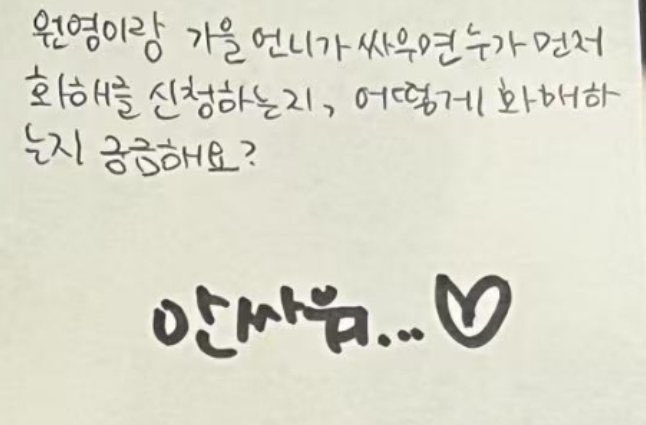 원영이랑 가을 언니가 싸우면 누가 먼저
화해를 신청하는지, 어떻게 화해하
는지 궁금해요?
안싸워...♡